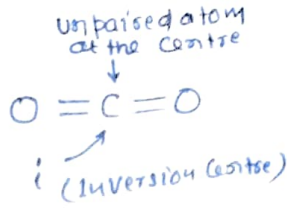 unpaired atom
at the centre
O = C = O
i (Inversion Centre)